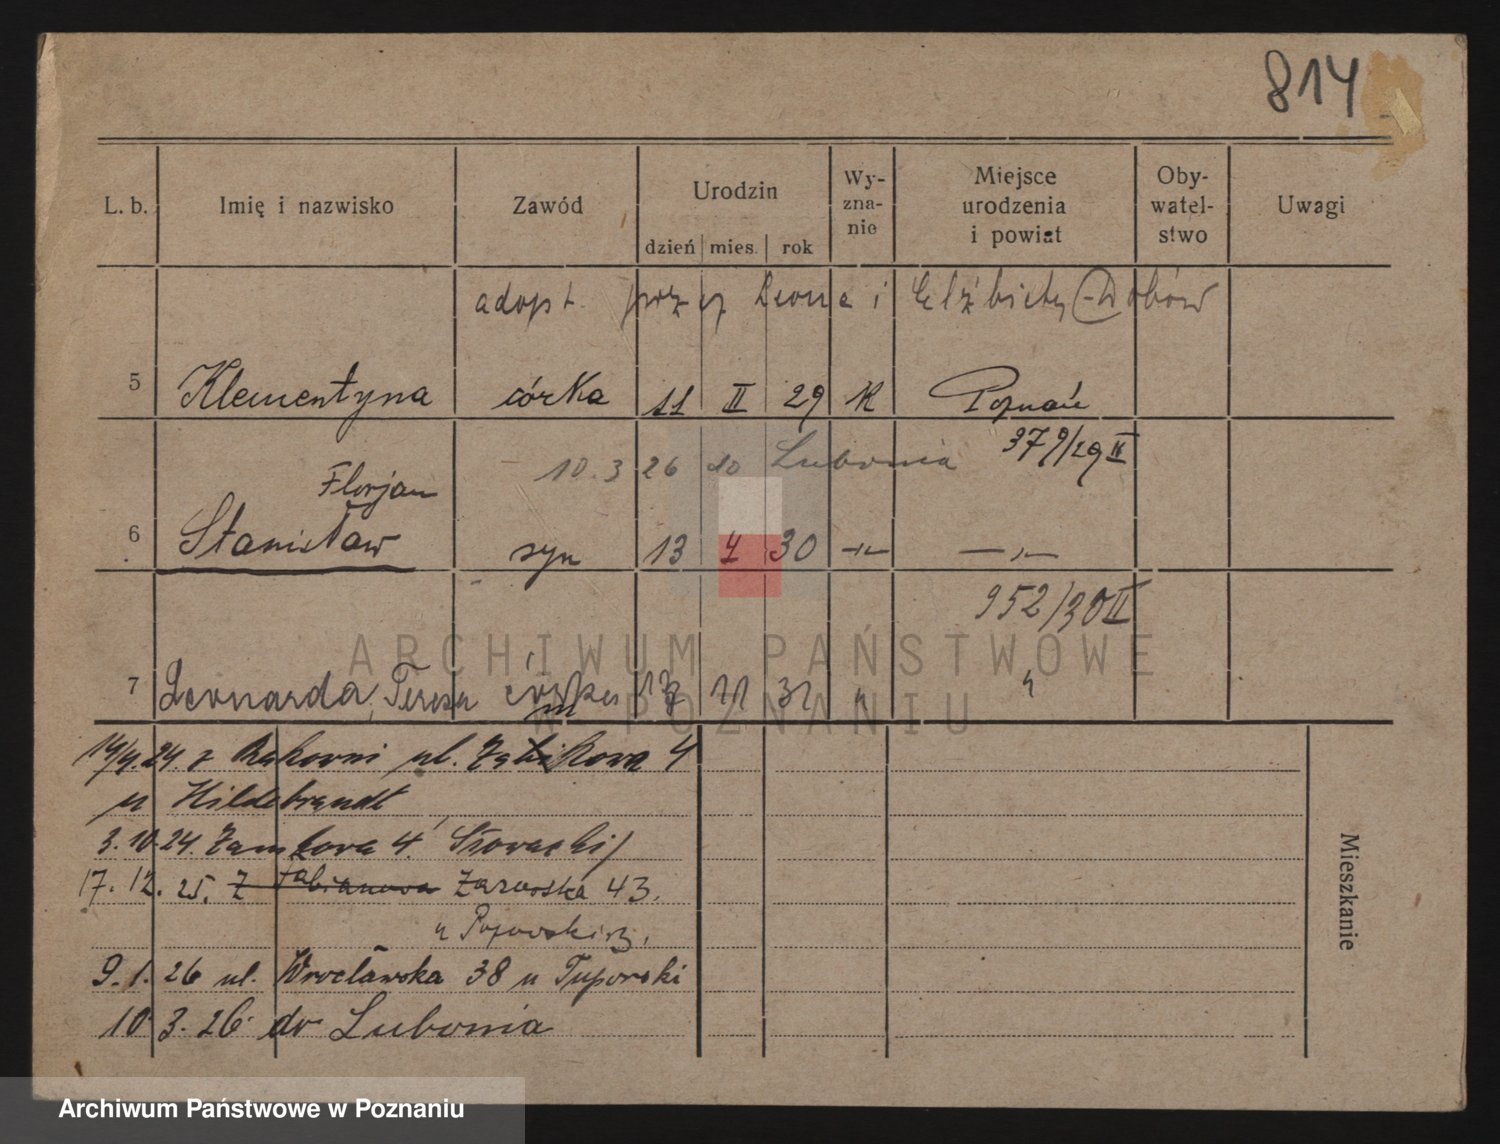 814
L. b. Imię i nazwisko Zawód Urodzin dzień mies. rok Wy-zna-nie Miejsce urodzenia i powiat Oby-watel-stwo Uwagi
adopt. przez Leona i Elżbiety
5 Klementyna córka 11 II 29 K Poznań
10.3 26 do Lubonia 379/29 II
Florjan
6 Stanisław syn 13 4 30 —"— —"—
952/30 II
ARCHIWUM PAŃSTWOWE
7 Leonarda, Teresa córka 11 31 " "
W POZNANIU
14/4.24. z ul. 4
u Hildebrandt
3.10.24. Zamkowa 4. Słowacki
17.12.25. Z Fabianowa 43.
u
9.1.26 ul. Wrocławska 38 u
10.3.26 do Lubonia
Mieszkanie
Archiwum Państwowe w Poznaniu